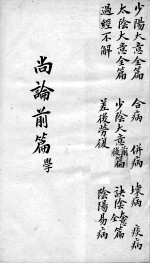 少陽大意全篇 合病 併病 壞病 痰病
太陰大意全篇 少陰大意前篇後篇 訣陰全篇
過經不解 差後勞復 陰陽易病
尚論前篇 學